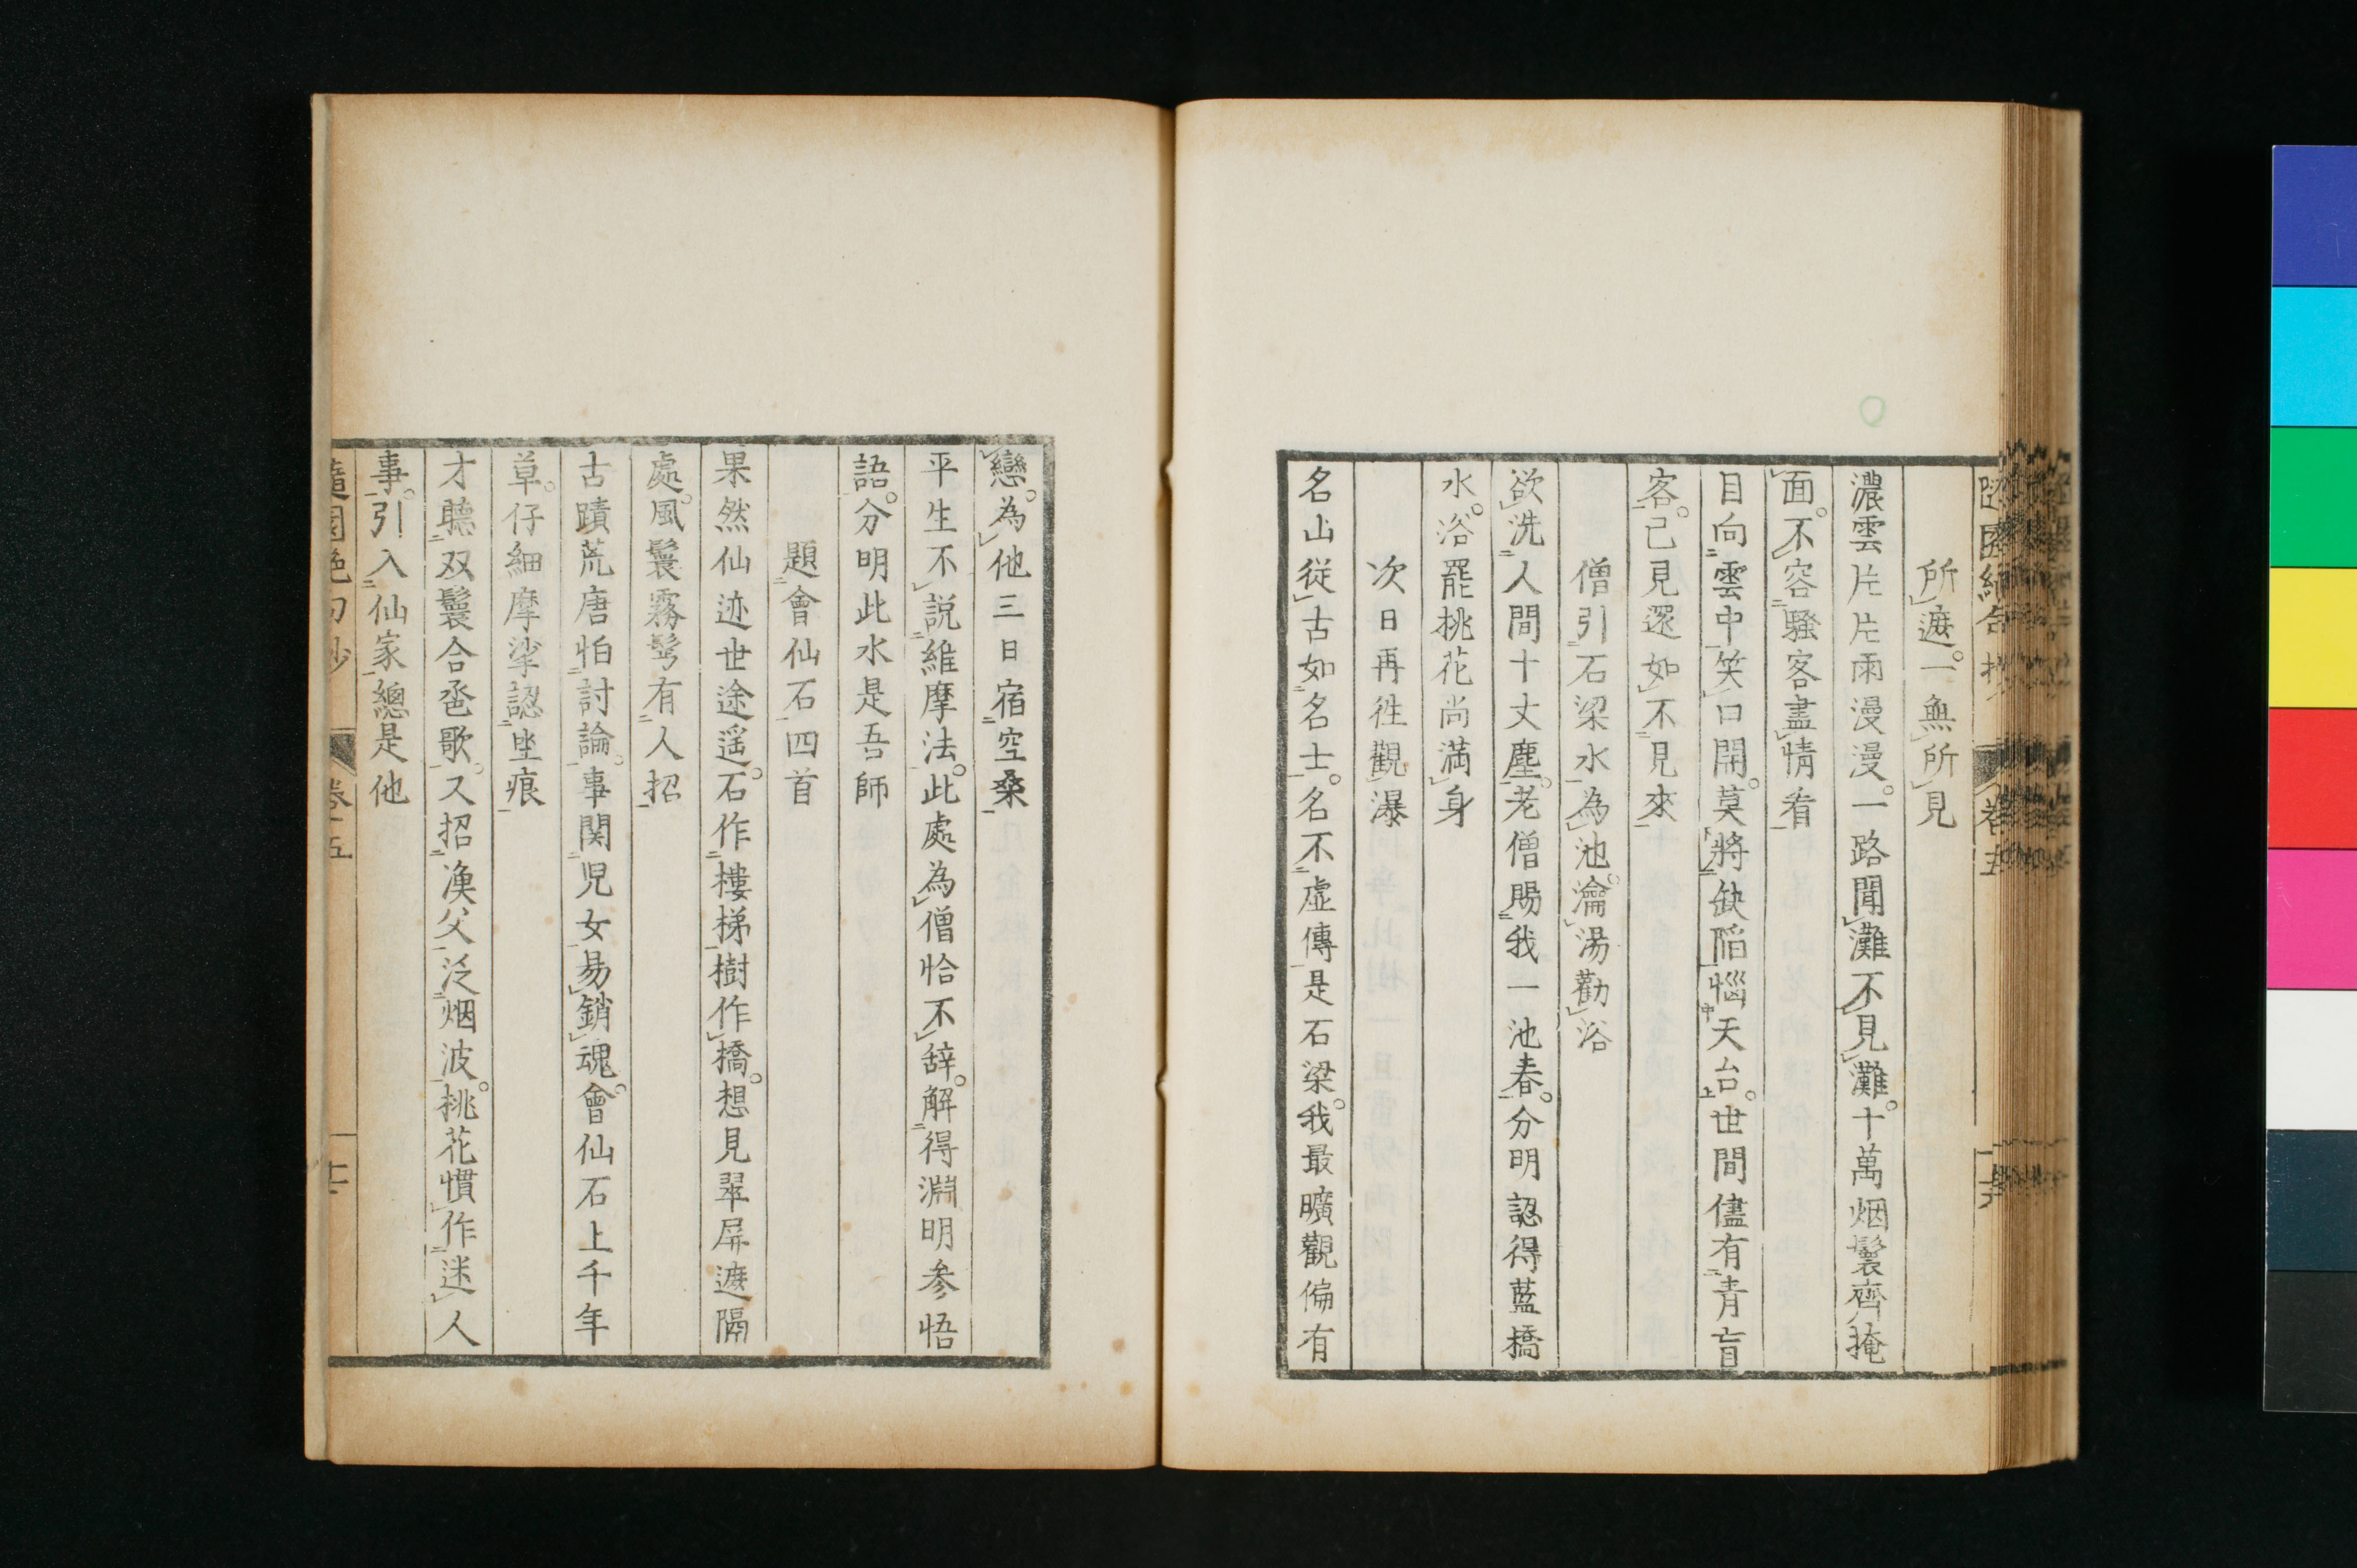 所遮一無所見
濃雲片片雨漫漫。一路聞灘不見灘。十萬烟鬟齊掩
面。不容騷客盡情看
目向雲中笑口開。莫將缺陷惱天台。世間儘有青盲
客。己見還如不見來
僧引石梁水為池。瀹湯勸浴
欲洗人間十丈塵。老僧賜我一池春。分明認得藍橋
水。浴罷桃花尚滿身
次日再徃觀瀑
名山從古如名士。名不虛傳是石梁。我最曠觀偏有
戀。為他三日宿空桑
平生不説維摩法。此處為僧恰不辞。解得淵明参悟
語。分明此水是吾師
題會仙石四首
果然仙迹世途遥。石作樓梯樹作橋。想見翠屏遮隔
處。風鬟霧鬢有人招
古蹟荒唐怕討論。事関児女易銷魂。會仙石上千年
草。仔細摩挲認坐痕
才聽双鬟合巹歌。又招漁父泛烟波。桃花慣作迷人
事。引入仙家總是他
隨園絶句抄 卷五